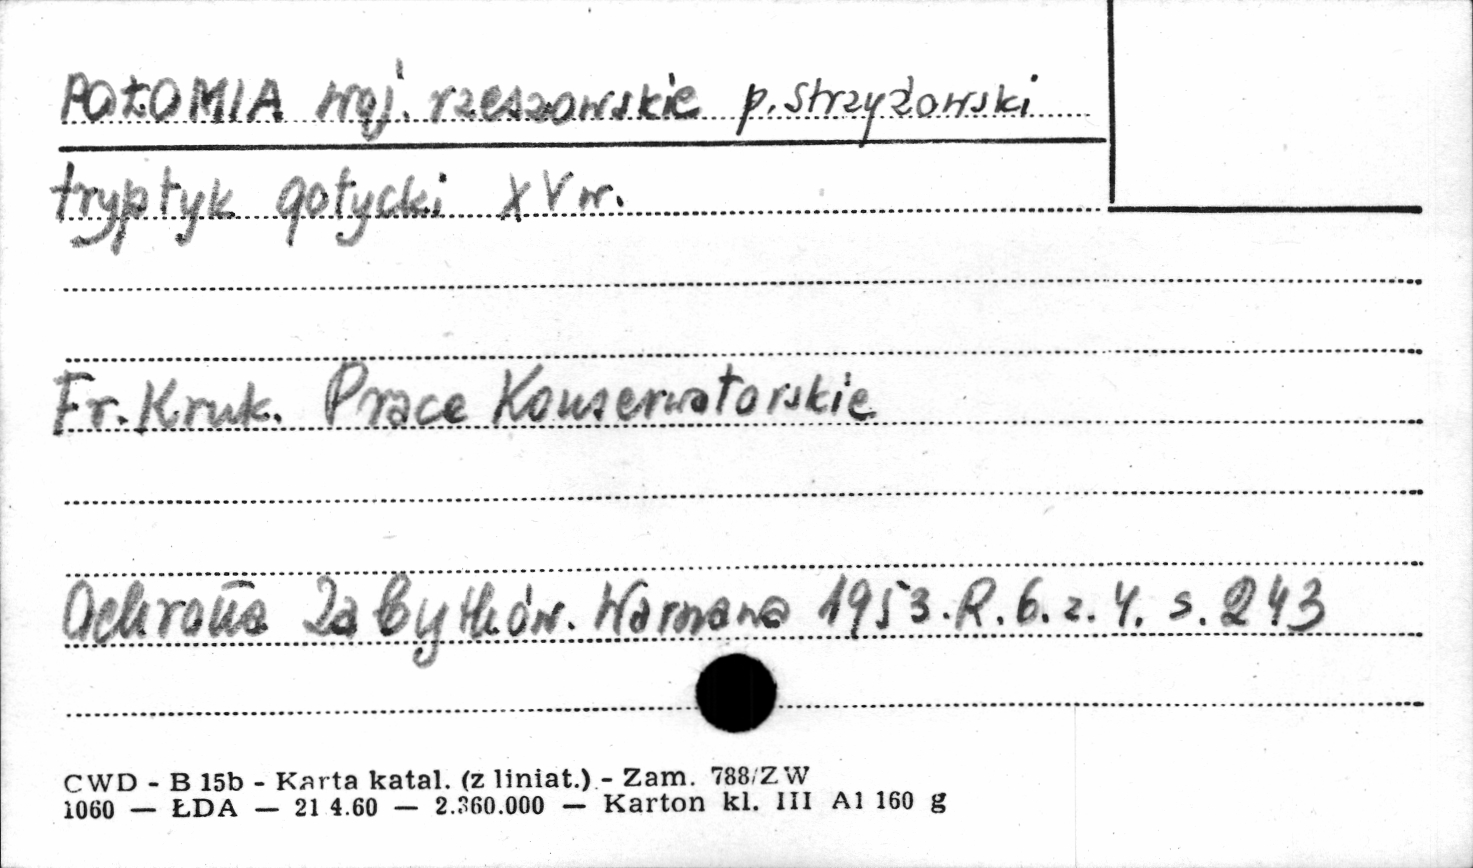 POŁOMIA woj. rzeszowskie p. strzyżowski
tryptyk gotycki XV w.
Fr. Kruk. Prace Konserwatorskie
Ochrona Zabytków. Warszawa 1953. R. 6. z. 4. s. 243
CWD - B 15b - Karta katal. (z liniat.) - Zam. 788/ZW
1060 — ŁDA — 21 4.60 — 2.360.000 — Karton kl. III A1 160 g